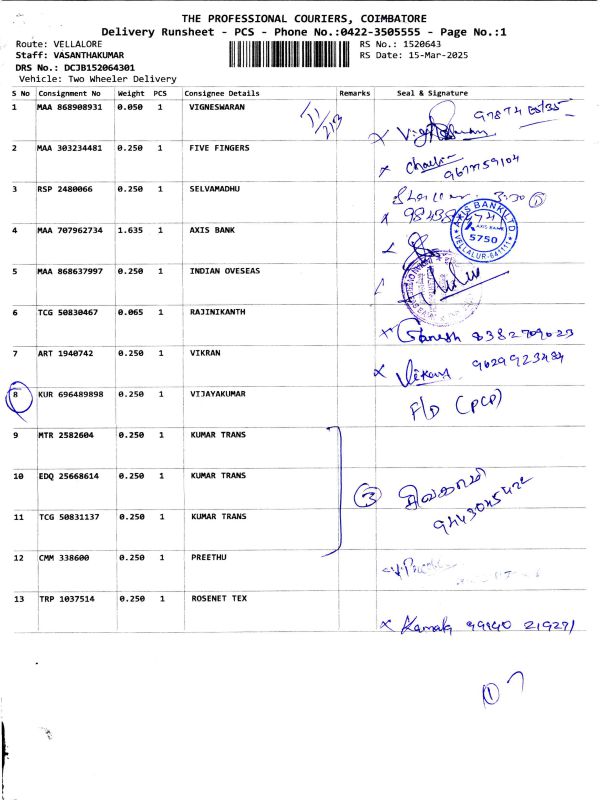 THE PROFESSIONAL COURIERS, COIMBATORE
Delivery Runsheet - PCS - Phone No.:0422-3505555 - Page No.:1
Route: VELLALORE RS No.: 1520643
Staff: VASANTHAKUMAR RS Date: 15-Mar-2025
DRS No.: DCJB152064301
Vehicle: Two Wheeler Delivery
S No Consignment No Weight PCS Consignee Details Remarks Seal & Signature
1 MAA 868908931 0.050 1 VIGNESWARAN
2 MAA 303234481 0.250 1 FIVE FINGERS
9677759104
3 RSP 2480066 0.250 1 SELVAMADHU
3:30
4 MAA 707962734 1.635 1 AXIS BANK
AXIS BANK LTD
AXIS BANK
5750
VELLALUR-641111
5 MAA 868637997 0.250 1 INDIAN OVESEAS
6 TCG 50830467 0.065 1 RAJINIKANTH
x Ganesh 8382709023
7 ART 1940742 0.250 1 VIKRAN
x Vikram 9629923484
8 KUR 696489898 0.250 1 VIJAYAKUMAR
F/D (PCP)
9 MTR 2582604 0.250 1 KUMAR TRANS
10 EDQ 25668614 0.250 1 KUMAR TRANS
3
11 TCG 50831137 0.250 1 KUMAR TRANS
12 CMM 338600 0.250 1 PREETHU
13 TRP 1037514 0.250 1 ROSENET TEX
x Kamala 99940 21927
1